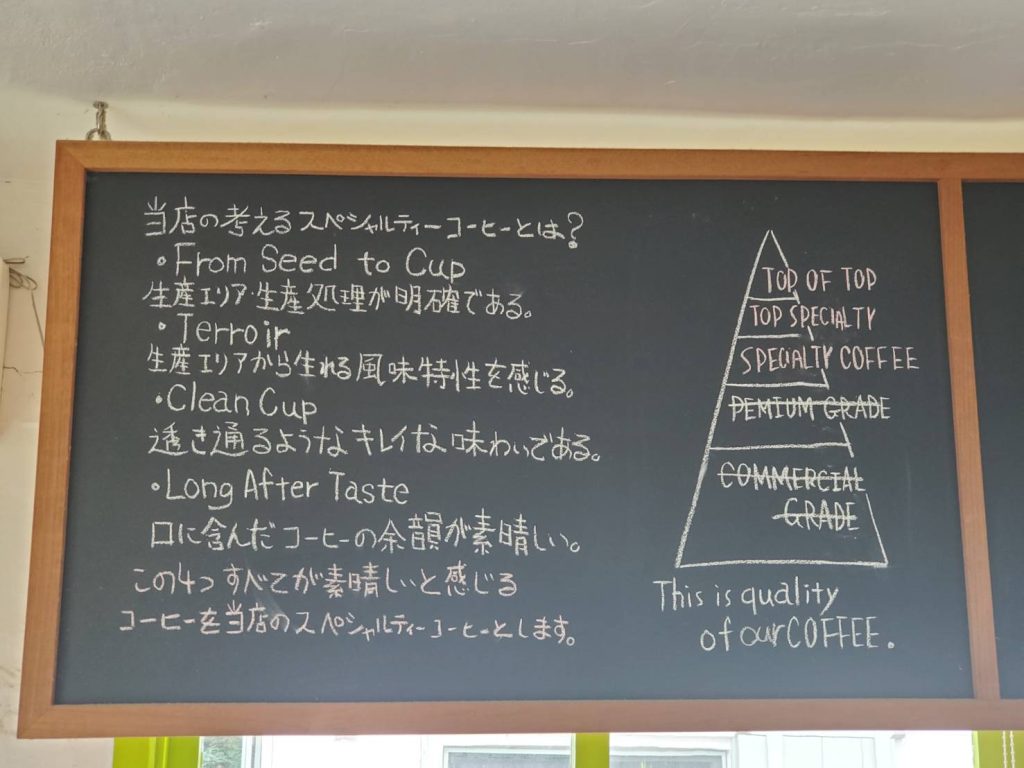 当店の考えるスペシャルティーコーヒーとは?
・From Seed to Cup
生産エリア・生産処理が明確である。
・Terroir
生産エリアから生れる風味特性を感じる。
・Clean Cup
透き通るようなキレイな味わいである。
・Long After Taste
口に含んだコーヒーの余韻が素晴しい。
この4つすべてが素晴しいと感じる
コーヒーを当店のスペシャルティーコーヒーとします。
TOP OF TOP
TOP SPECIALTY
SPECIALTY COFFEE
PEMIUM GRADE
COMMERCIAL
GRADE
This is quality
of our COFFEE.